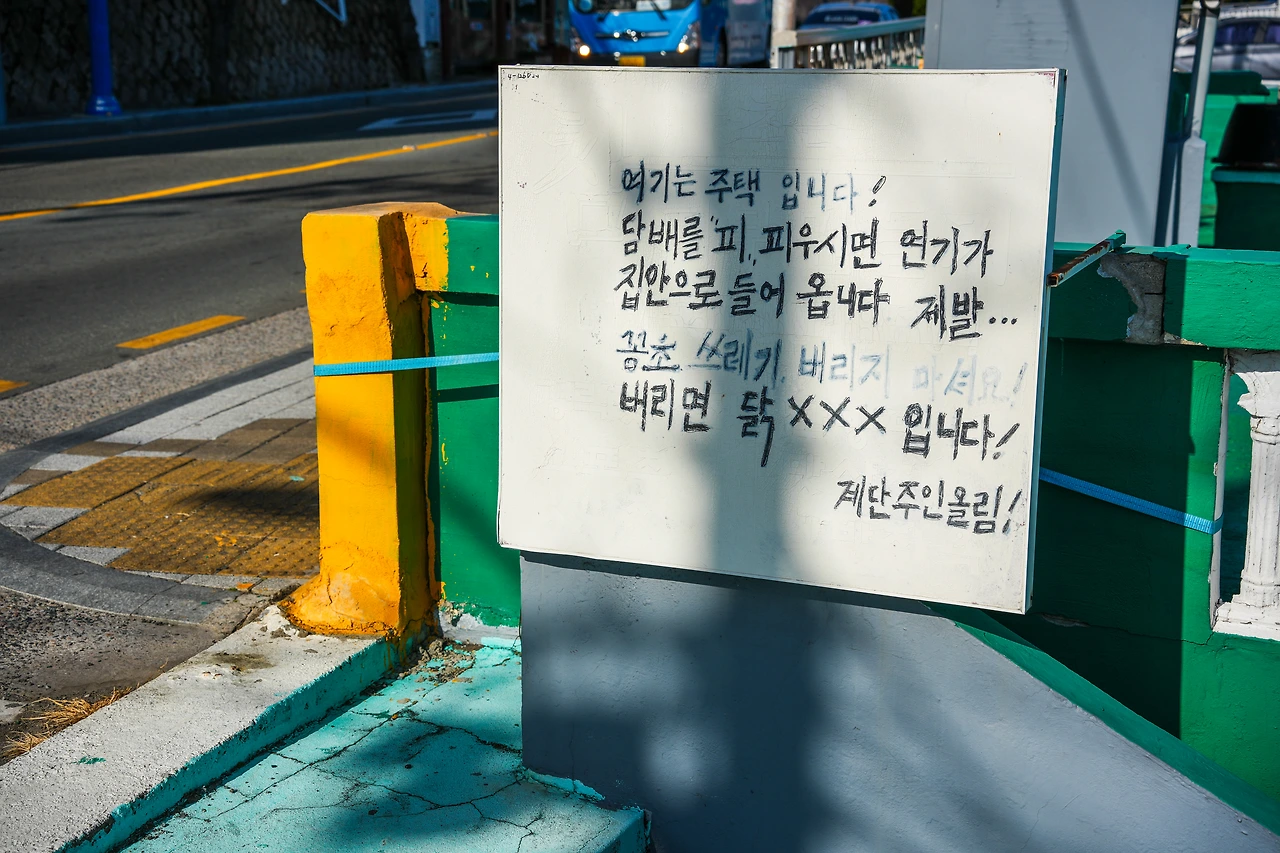 여기는 주택 입니다!
담배를 "피, 피우시면 연기가
집안으로 들어 옵니다 제발...
꽁초 쓰레기 버리지 마세요!
버리면 닭 XXX 입니다!
계단주인올림!